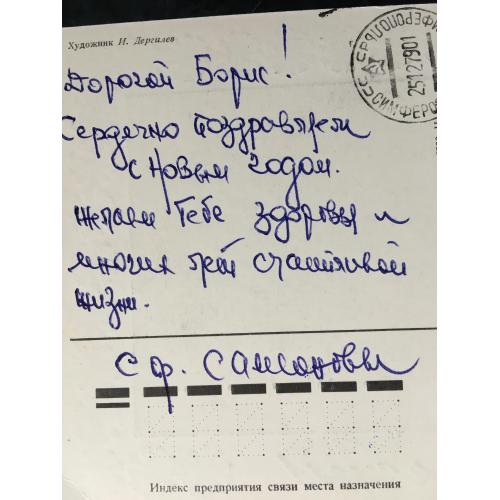 Художник И. Дергилев
Дорогой Борис!
Сердечно поздравляем
с Новым годом.
желаем тебе здоровья и
многих лет счастливой
жизни.
Индекс предприятия связи места назначения
СССР
СИМФЕРОПОЛЬ
25127901